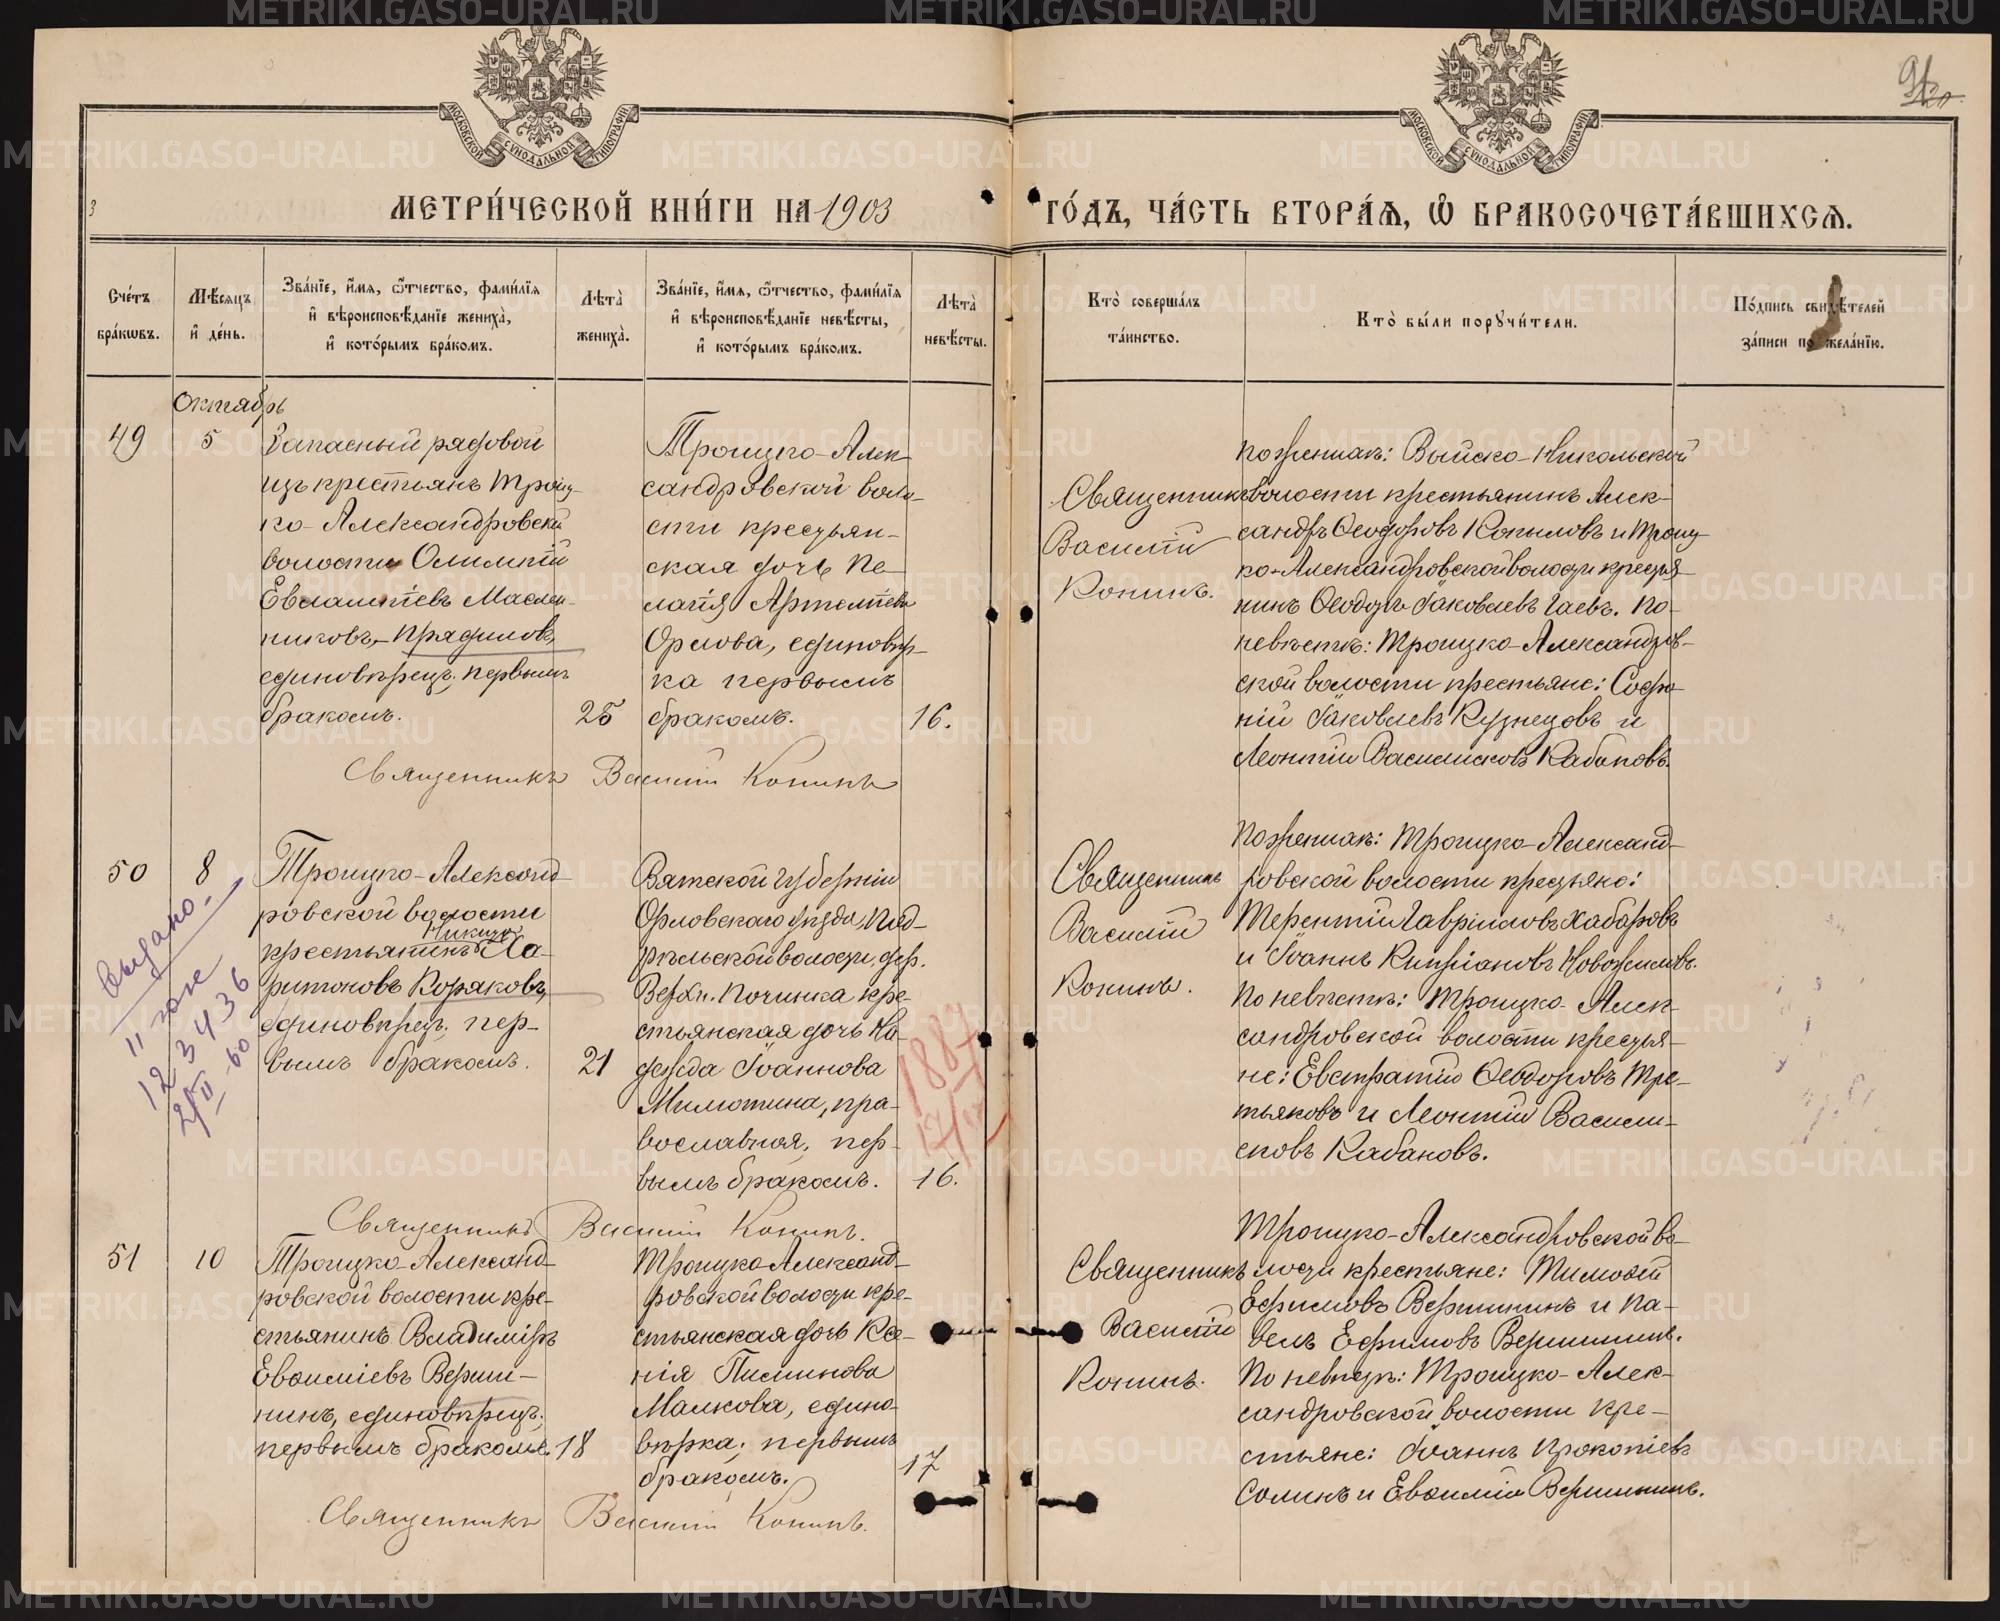 МЕТРИ́ЧЕСКОЙ КНИ́ГИ НА 1903
ГО́ДЪ, ЧА́СТЬ ВТОРА́Ѧ, Ѽ БРАКОСОЧЕТА́ВШИХСѦ.
МОСКОВСКОЙ СѴНОДАЛЬНОЙ ТИПОГРАФІИ
МОСКОВСКОЙ СѴНОДАЛЬНОЙ ТИПОГРАФІИ
Сче́тъ бра́кѡвъ.
Мѣ́сяцъ и де́нь.
Зва́нїе, и́мя, ѻ́тчество, фами́лїя
и вѣроисповѣ́данїе жениха̀,
и кото́рымъ бра́комъ.
Лѣта̀ жениха̀.
Зва́нїе, и́мя, ѻ́тчество, фами́лїя
и вѣроисповѣ́данїе невѣ́сты,
и кото́рымъ бра́комъ.
Лѣта̀ невѣ́сты.
Кто̀ соверша́лъ
та́инство.
Кто̀ бы́ли порꙋчи́тели.
По́дпись свидѣ́телей
за́писи по жела́нїю.
Октябрь
49
5
Запасный рядовой
изъ крестьянъ Троиц-
ко-Александровской
волости Олимпій
Евлампіевъ Маслен-
никовъ,-Прядиловъ,
единовѣрецъ, первымъ
бракомъ.
25
Троицко-Алек-
сандровской воло-
сти крестьян-
ская дочь Пе-
лагія Артеміева
Орлова, единовѣр-
ка первымъ
бракомъ.
16.
Священникъ Василій Конинъ
Священникъ
Василій
Конинъ.
по женихѣ: Выйско-Никольской
волости крестьянинъ Алек-
сандръ Ѳеодоровъ Копыловъ и Троиц-
ко-Александровской волости крестья-
нинъ Ѳеодоръ Іаковлевъ Гаевъ. По
невѣстѣ: Троицко-Александров-
ской волости крестьяне: Софро-
ній Іаковлевъ Кузнецовъ и
Леонтій Василисковъ Кабановъ.
50
8
Троицко-Александ-
ровской волости
крестьянинъ Никита Ха-
ритоновъ Коряковъ,
единовѣрецъ, пер-
вымъ бракомъ.
21
Вятской губерніи
Орловскаго уѣзда,
волости, дер.
Верхн. Починка кре-
стьянская дочь На-
дежда Іоаннова
Милютина, пра-
вославная, пер-
вымъ бракомъ.
16.
1887
Выдано
123436
Священникъ Василій Конинъ.
Священникъ
Василій
Конинъ.
По женихѣ: Троицко-Александ-
ровской волости крестьяне:
Терентій Гавріиловъ Хабаровъ
и Іоаннъ Кипріановъ Новожиловъ.
По невѣстѣ: Троицко-Алек-
сандровской волости крестья-
не: Евстратій Ѳеодоровъ Тре-
тьяковъ и Леонтій Васили-
сковъ Кабановъ.
51
10
Троицко-Александ-
ровской волости кре-
стьянинъ Владиміръ
Евѳиміевъ Верши-
нинъ, единовѣрецъ,
первымъ бракомъ.
18
Троицко-Александ-
ровской волости кре-
стьянская дочь Ксе-
нія Пименова
Малкова, едино-
вѣрка, первымъ
бракомъ.
17
Священникъ Василій Конинъ.
Священникъ
Василій
Конинъ.
Троицко-Александровской во-
лости крестьяне: Тимоѳей
Ефимовъ Вершининъ и Па-
велъ Ефимовъ Вершининъ.
По невѣстѣ: Троицко-Алек-
сандровской волости кре-
стьяне: Іоаннъ Прокопіевъ
Соминъ и Евѳимій Вершининъ.
METRIKI.GASO-URAL.RU